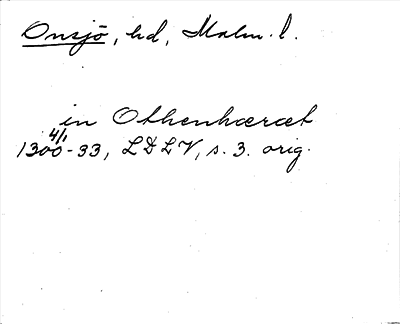 Onsjö, hd, Malm. l.
in Othenhæræt
4/1
1300-33, LDLV, s. 3. orig.